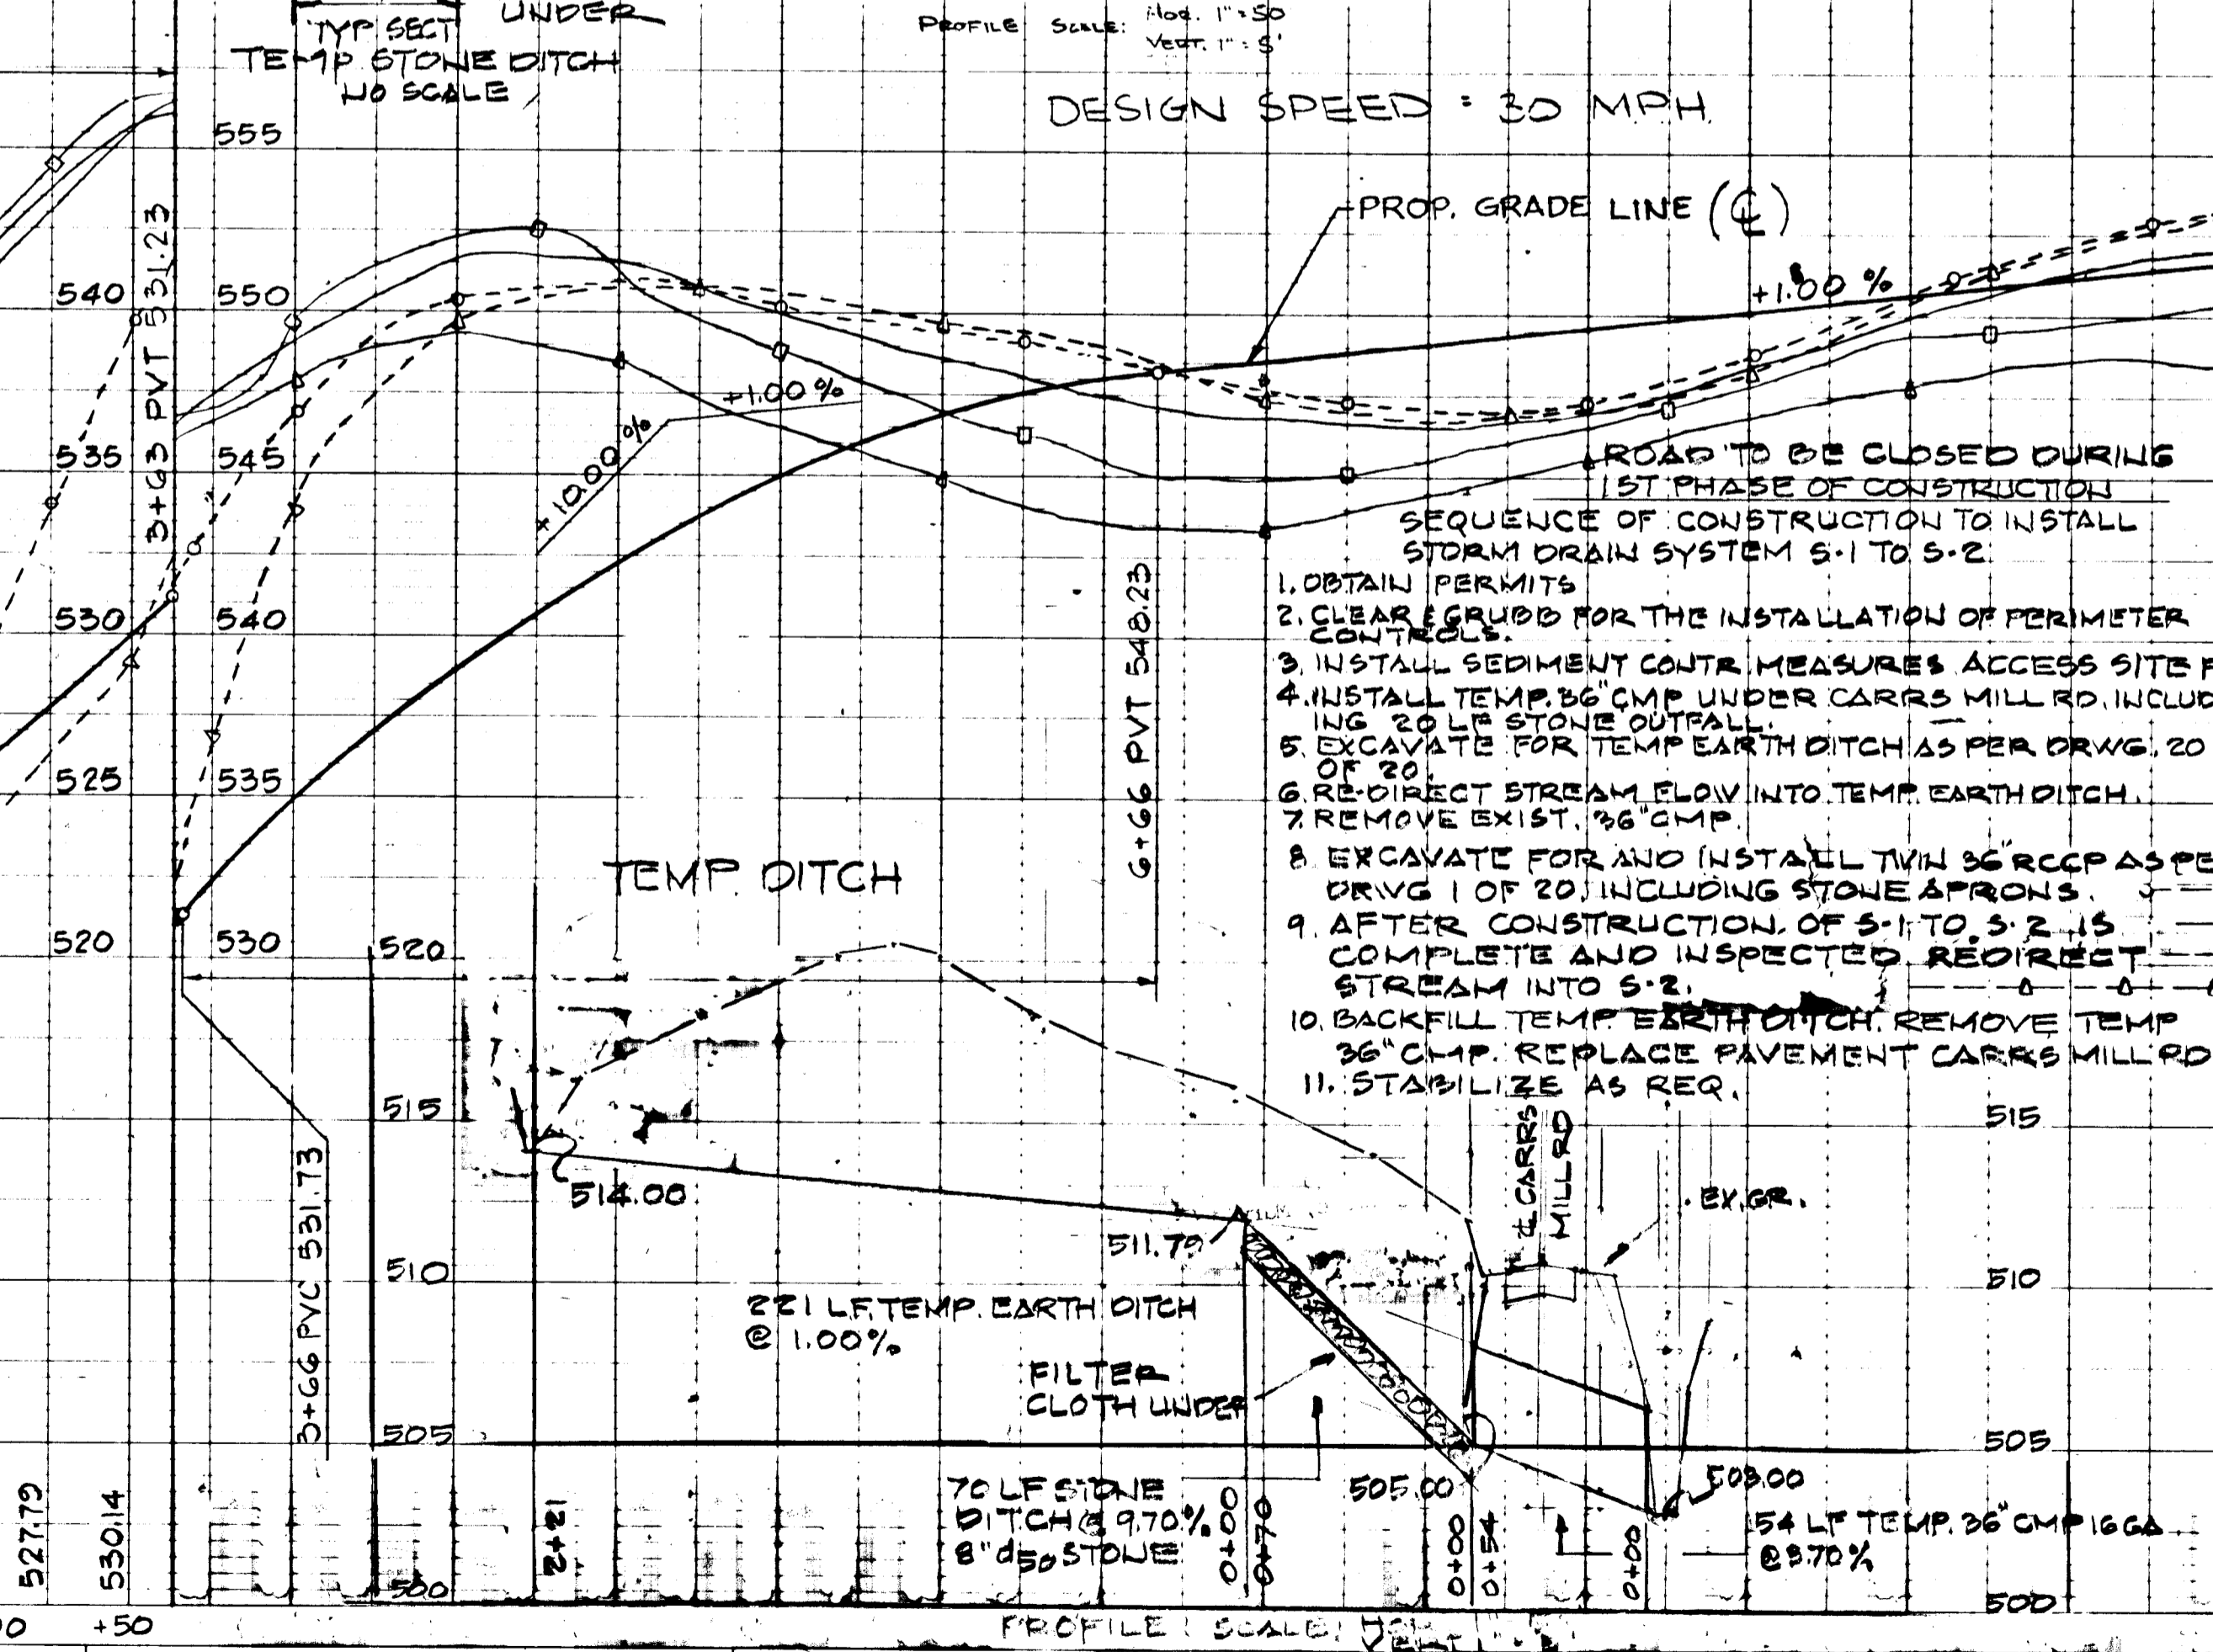 UNDER
TYP SECT
TEMP STONE DITCH
NO SCALE
PROFILE SCALE: HOR. 1"=50'
VERT. 1"=5'
DESIGN SPEED = 30 MPH
PROP. GRADE LINE (℄)
+1.00 %
+1.00 %
+10.00 %
555
550
545
540
535
530
540
535
530
525
520
3+63 PVT 531.23
6+66 PVT 548.23
3+66 PVC 531.73
ROAD TO BE CLOSED DURING
1ST PHASE OF CONSTRUCTION
SEQUENCE OF CONSTRUCTION TO INSTALL
STORM DRAIN SYSTEM S-1 TO S-2
1. OBTAIN PERMITS
2. CLEAR & GRUBB FOR THE INSTALLATION OF PERIMETER
CONTROLS.
3. INSTALL SEDIMENT CONTR. MEASURES ACCESS SITE
4. INSTALL TEMP. 36" CMP UNDER CARRS MILL RD. INCLUD
ING 20 LF STONE OUTFALL.
5. EXCAVATE FOR TEMP EARTH DITCH AS PER DRWG. 20
OF 20.
6. RE-DIRECT STREAM FLOW INTO TEMP. EARTH DITCH.
7. REMOVE EXIST. 36" CMP.
8. EXCAVATE FOR AND INSTALL TWIN 36" RCCP AS PE
DRWG 1 OF 20, INCLUDING STONE APRONS.
9. AFTER CONSTRUCTION OF S-1 TO S-2 IS
COMPLETE AND INSPECTED REDIRECT
STREAM INTO S-2.
10. BACKFILL TEMP EARTH DITCH. REMOVE TEMP
36" CMP. REPLACE PAVEMENT CARRS MILL RD
11. STABILIZE AS REQ.
TEMP. DITCH
520
515
510
505
500
514.00
511.79
221 LF. TEMP. EARTH DITCH
@ 1.00%
FILTER
CLOTH UNDER
70 LF STONE
DITCH @ 9.70%
8" d50 STONE
505.00
℄ CARRS
MILL RD
EX. GR.
503.00
54 LF TEMP. 36" CMP 16 GA
@ 3.70%
515
510
505
500
2+21
0+00
0+70
0+00
0+54
0+00
527.79
530.14
+50
PROFILE SCALE: